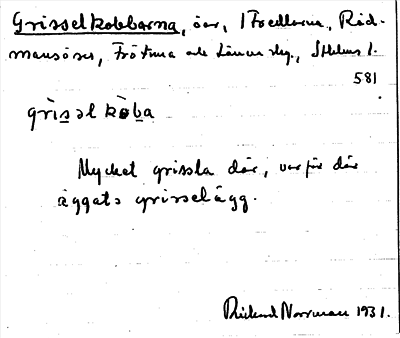 Grisselkobbarna, öar, i Fredlarna, Råd-
mansö sn, Frötuna och Länna skg., Sthlms l.
581
grìsəl kòba
Mycket grissla där, varför där
äggats grisselägg.
Rickard Norrman 1931.